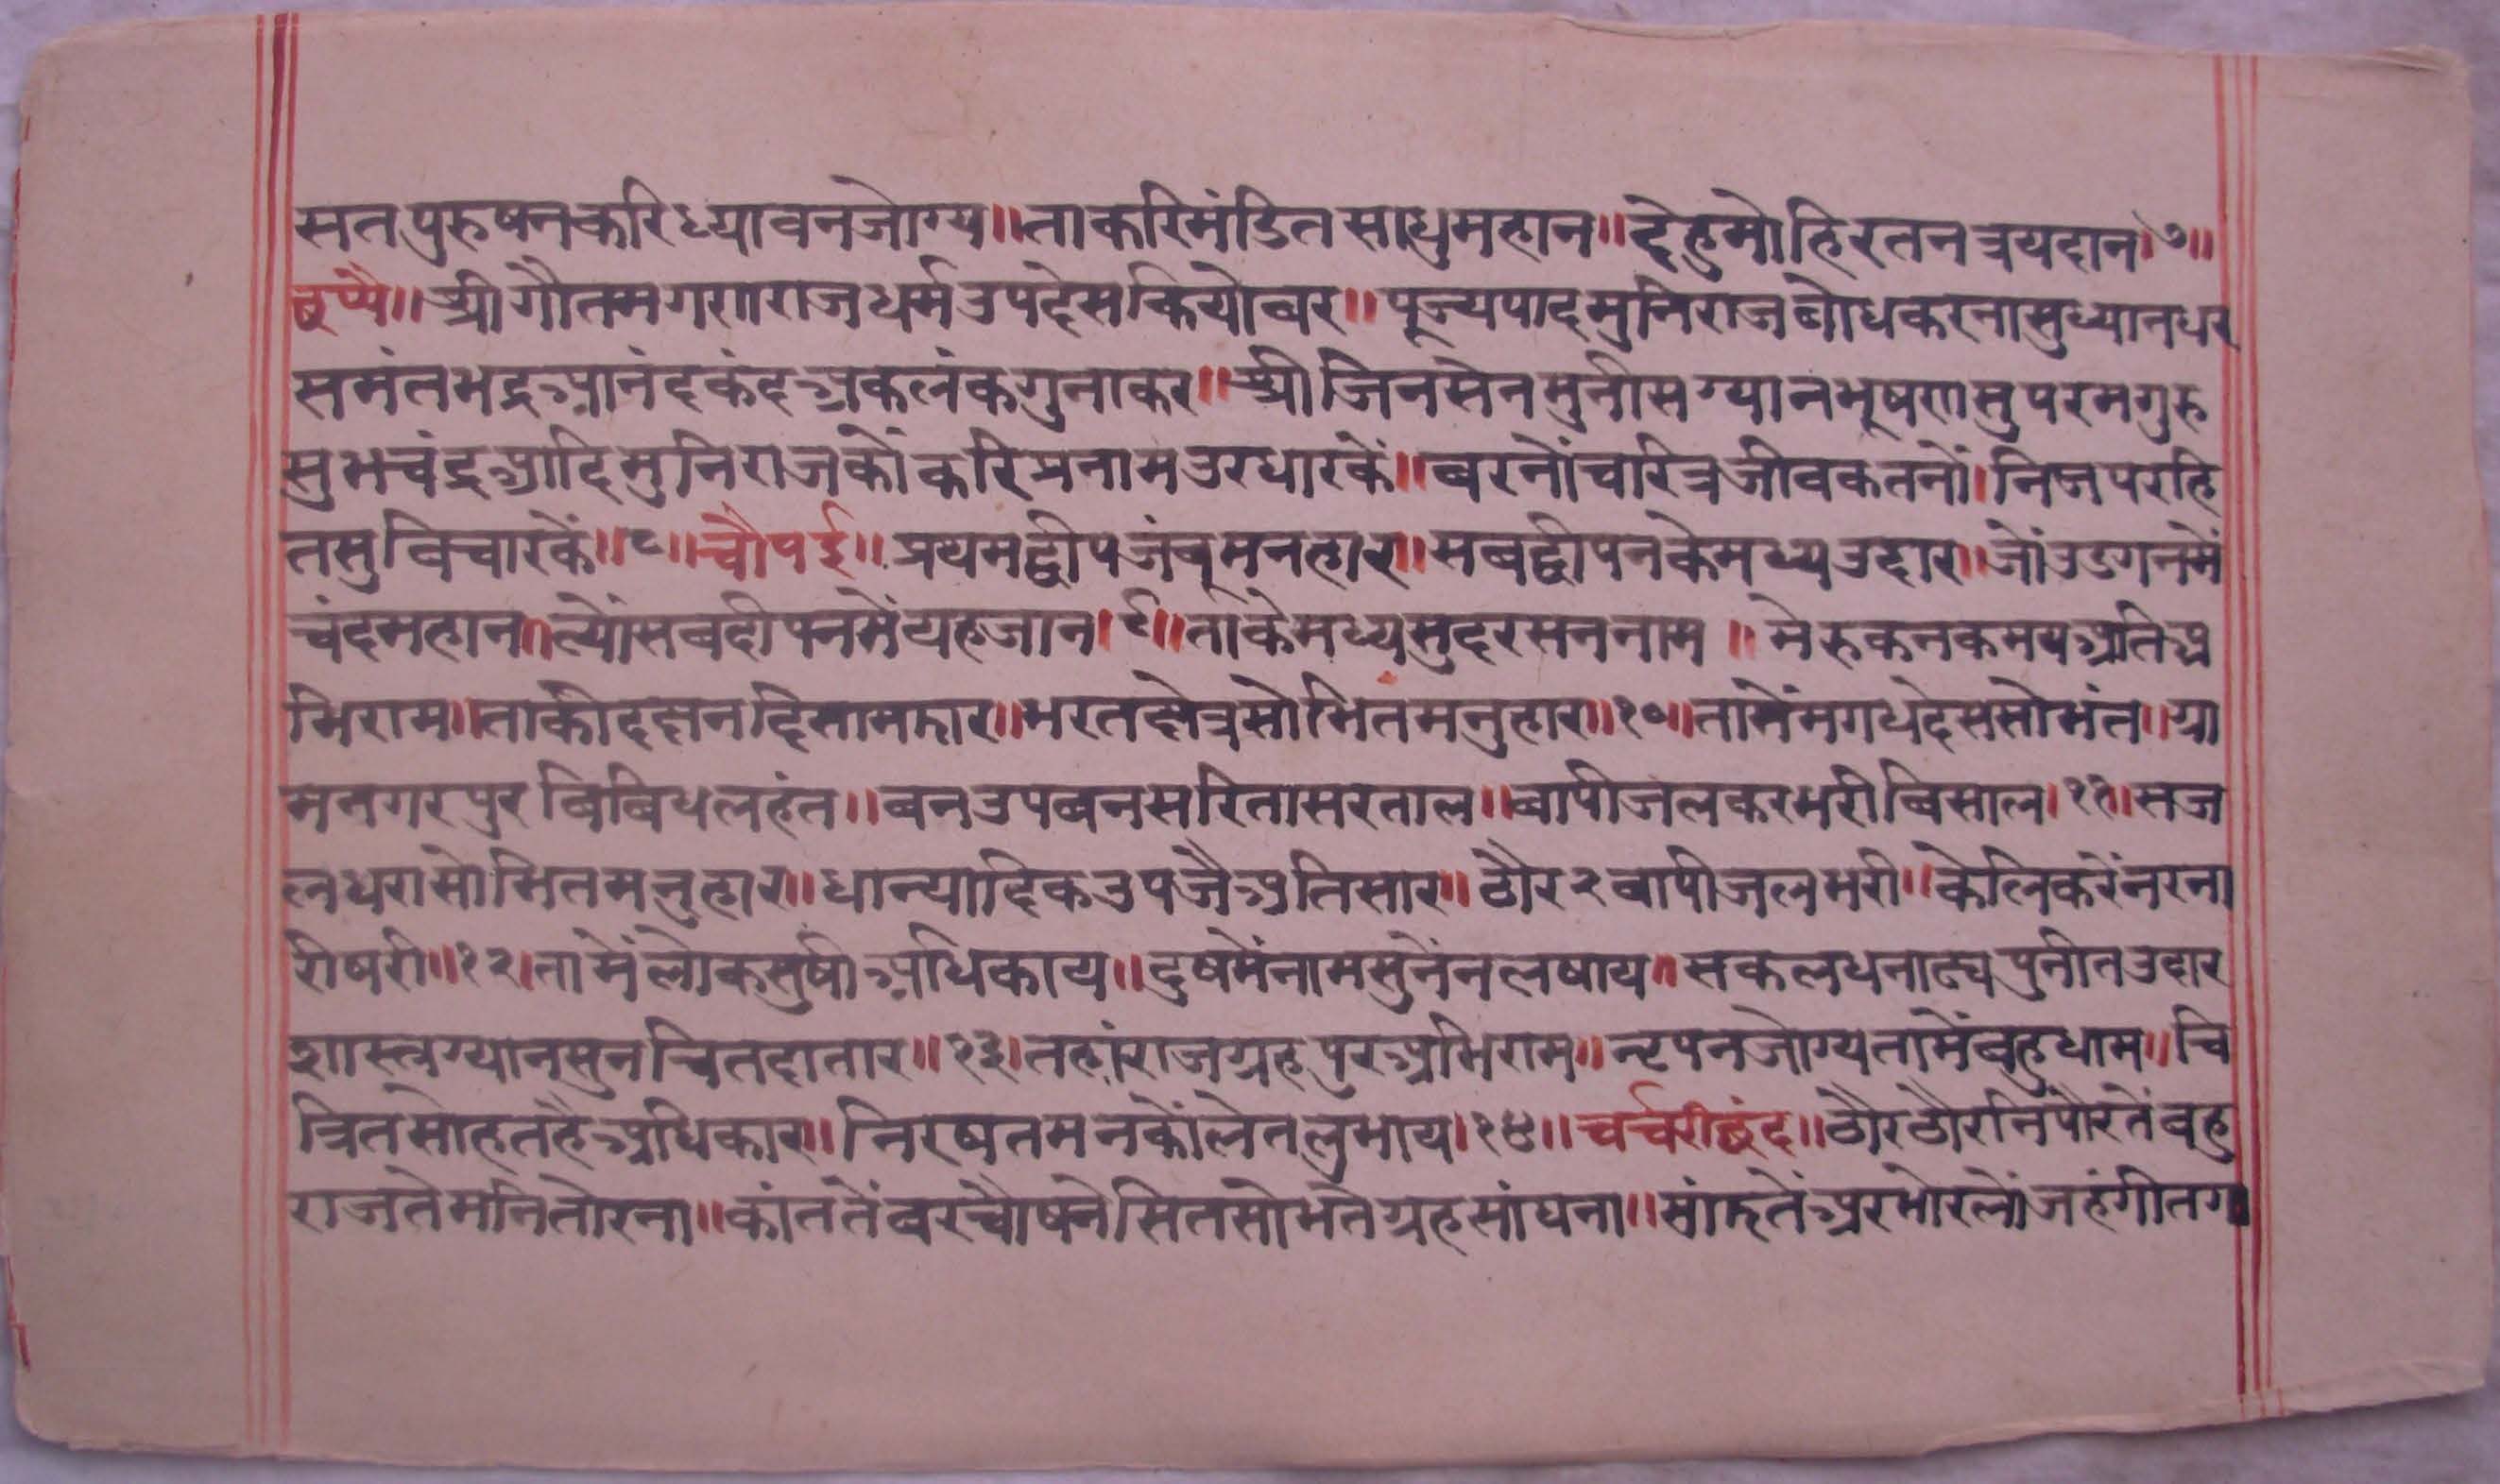 सतपुरुषनकरिध्यावनजोग्य॥ताकरिमंडितसाधुमहान॥देहुमोहिरतनत्रयदान।७॥
छप्पै॥श्रीगौतमगणराजधर्मउपदेसकियोवर॥पूज्यपादमुनिराजबोधकरनासुध्यानधर
समंतभद्रआनंदकंदअकलंकगुनाकर॥श्रीजिनसेनमुनीसग्यानभूषणसुपरमगुरु
सुभचंद्रआदिमुनिराजकोंकरिप्रनामउरधारकें॥बरनोंचारित्रजीवकतनों।निजपरहि
तसुबिचारकें॥८॥चौपई॥प्रथमद्वीपजंबूमनहार॥सबद्वीपनकेमध्यउदार॥जोंउडगनमें
चंदमहान॥त्योंसबदीपनमेंयहजान।९॥ताकेमध्यसुदरसननाम॥मेरुकनकमयअतिअ
भिराम॥ताकीदक्षनदिसामझार॥भरतक्षेत्रसोभितमनुहार॥१०॥तामेंमगधदेससोभंत॥ग्रा
मनगरपुरबिबिधलहंत॥बनउपबनसरितासरताल॥बापीजलकरभरीबिसाल।११॥सज
लधरासोभितमनुहार॥धान्यादिकउपजैअतिसार॥ठौर२बापीजलभरी॥केलिकरेंनरना
रीषरी॥१२।तामेंलोकसुषीअधिकाय॥दुषमेंनामसुनेंनलषाय॥सकलधनाढ्यपुनीतउदार
शास्त्रग्यानसुनचितदातार॥१३।तहांराजग्रहपुरअभिराम॥नृपनजोग्यतामेंबहुधाम॥चि
त्रितसोहतहैअधिकार॥निरषतमनकोंलेतलुभाय।१४॥चर्चरीछंद॥ठौरठौरनिपौरतेंबहु
राजतेमनितोरना॥कांततेंबरचौषनेसितसोभतेग्रहसांघना॥सांझतेंअरभोरलोंजहंगीतग